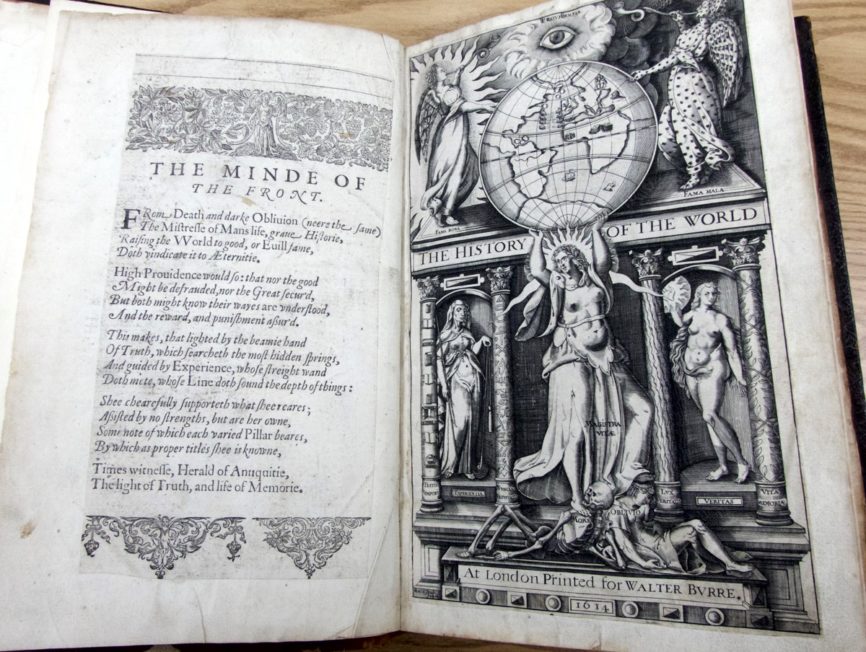 THE MINDE OF
THE FRONT.
FRom Death and darke Obliuion (neere the same)
The Mistresse of Mans life, graue Historie,
Raising the World to good, or Euill fame,
Doth vindicate it to Æternitie.
High Prouidence would so: that nor the good
Might be defrauded, nor the Great secur'd,
But both might know their wayes are vnderstood,
And the reward, and punishment assur'd.
This makes, that lighted by the beamie hand
Of Truth, which searcheth the most hidden springs,
And guided by Experience, whose streight wand
Doth mete, whose Line doth sound the depth of things:
Shee chearefully supporteth what shee reares;
Assisted by no strengths, but are her owne,
Some note of which each varied Pillar beares,
By which as proper titles shee is knowne,
Times witnesse, Herald of Antiquitie,
The light of Truth, and life of Memorie.
FAMA BONA
FAMA MALA
THE HISTORY OF THE WORLD
MAGISTRA
VITAE
MORS
OBLIVIO
VERITAS
At LONDON Printed for WALTER BVRRE.
1614